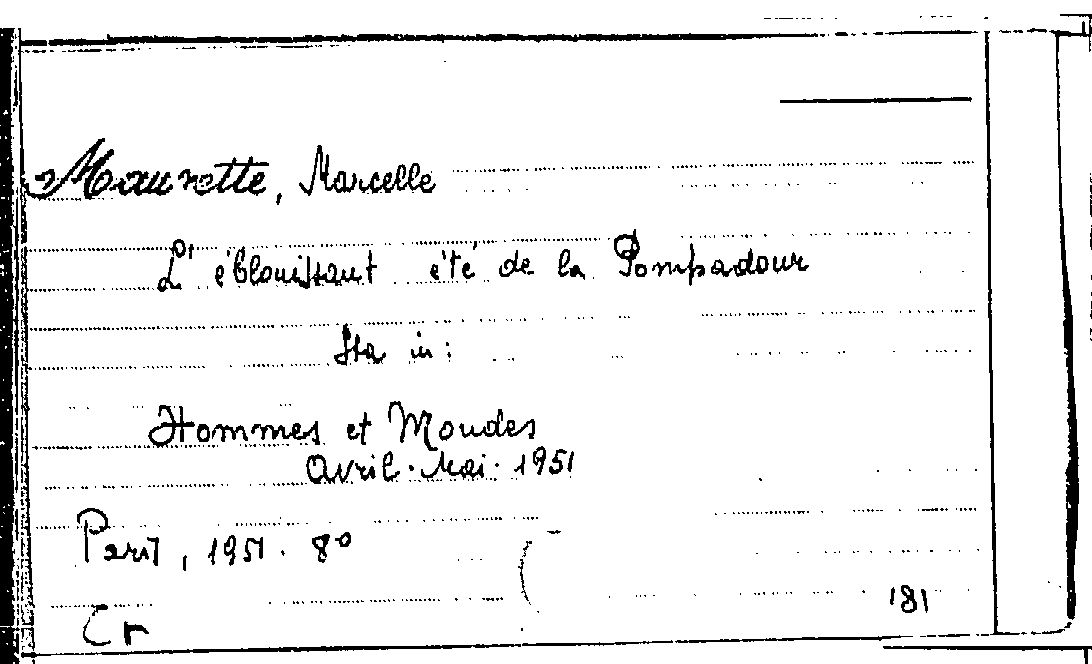 Maurette, Marcelle
L'éblouissant été de la Pompadour
Sta in:
Hommes et Mondes
Avril-Mai-1951
Paris, 1951. 8°
Cr
181